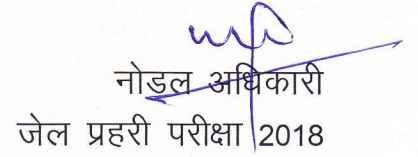 नोडल अधिकारी
जेल प्रहरी परीक्षा 2018